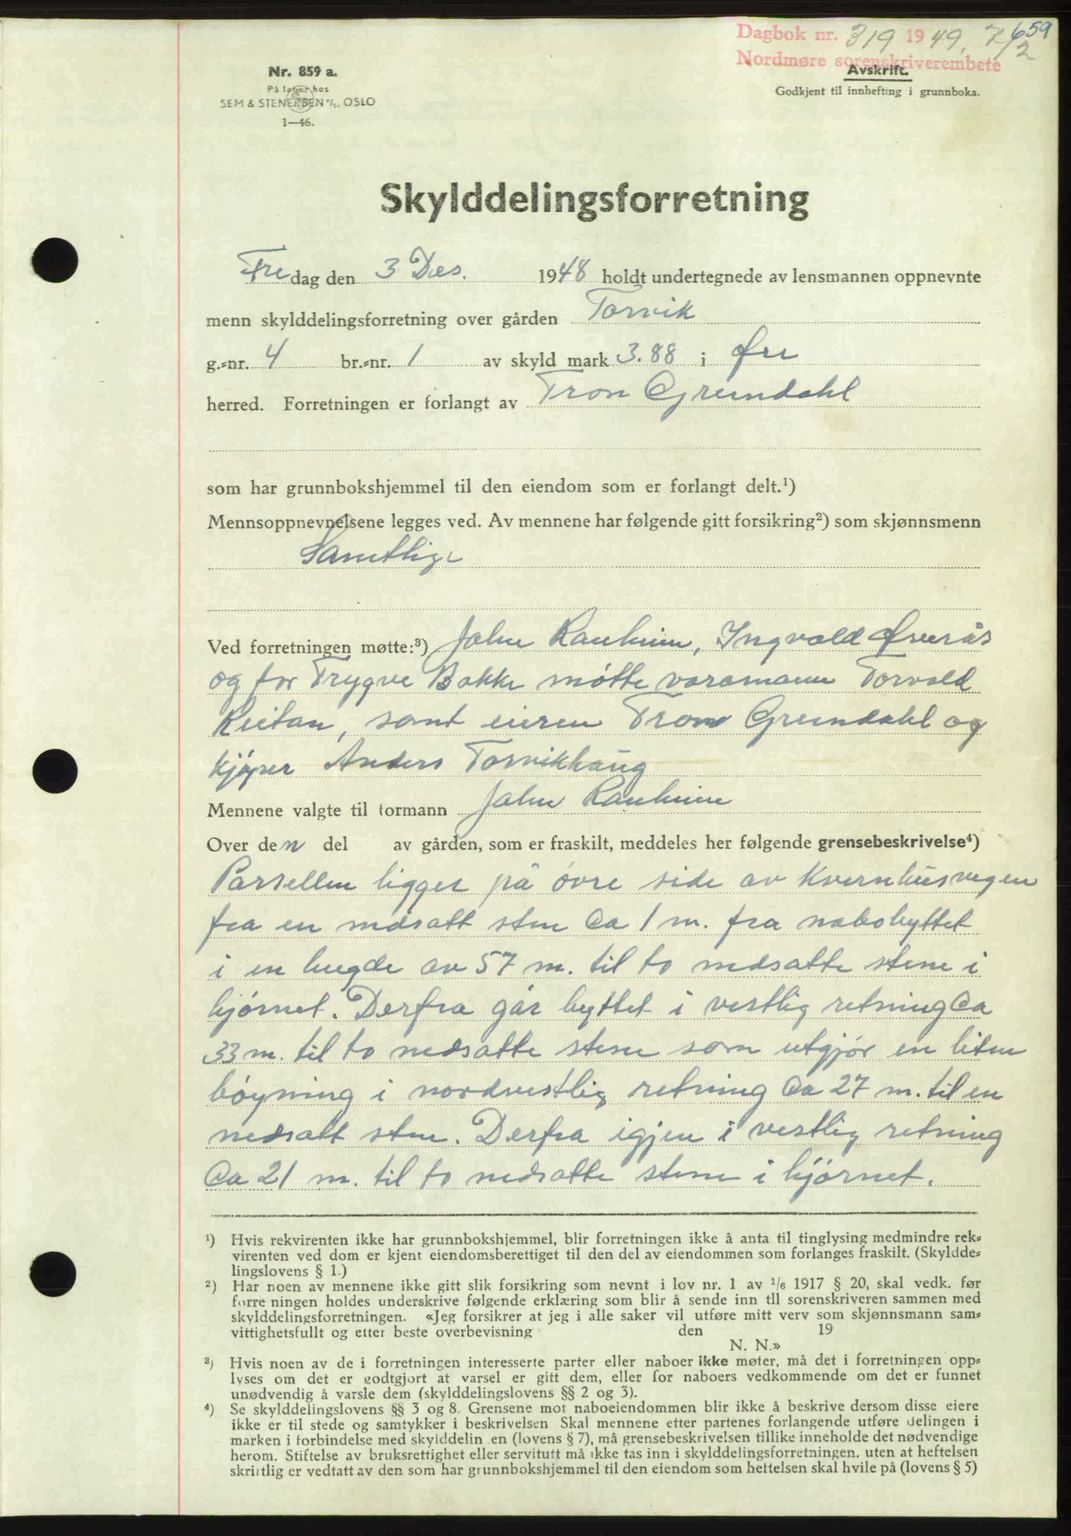 Dagbok nr. 319 1949, 7/2
659
Nordmøre sorenskriverembete
Nr. 859 a.
På lager hos
SEM & STENERSEN A/S, OSLO
1—46.
Avskrift.
Godkjent til innhefting i grunnboka.
Skylddelingsforretning
Fredag den 3 Des. 1948 holdt undertegnede av lensmannen oppnevnte
menn skylddelingsforretning over gården Torvik
g.-nr. 4 br.-nr. 1 av skyld mark 3.88 i Øre
herred. Forretningen er forlangt av Tron Grendahl
som har grunnbokshjemmel til den eiendom som er forlangt delt.¹)
Mennsoppnevnelsene legges ved. Av mennene har følgende gitt forsikring²) som skjønnsmenn
Samtlige
Ved forretningen møtte:³) John Ranheim, Ingvald Øverås
og for Trygve Bakke møtte varamann Torvald
Reitan, samt eieren Tron Grendahl og
kjøper Anders Torvikhaug
Mennene valgte til formann John Ranheim
Over den del av gården, som er fraskilt, meddeles her følgende grensebeskrivelse⁴)
Parsellen ligger på øvre side av Kvernhusvegen
fra en nedsatt sten Ca 1 m. fra nabobyttet
i en lengde av 57 m. til to nedsatte stene i
hjørnet. Derfra går byttet i vestlig retning Ca
33 m. til to nedsatte stene som utgjør en liten
bøyning i nordvestlig retning Ca 27 m. til en
nedsatt sten. Derfra igjen i vestlig retning
Ca 21 m. til to nedsatte stene i hjørnet.
¹) Hvis rekvirenten ikke har grunnbokshjemmel, blir forretningen ikke å anta til tinglysing medmindre rek-
virenten ved dom er kjent eiendomsberettiget til den del av eiendommen som forlanges fraskilt. (Skyldde-
lingslovens § 1.)
²) Har noen av mennene ikke gitt slik forsikring som nevnt i lov nr. 1 av 1/6 1917 § 20, skal vedk. før
forretningen holdes underskrive følgende erklæring som blir å sende inn til sorenskriveren sammen med
skylddelingsforretningen. «Jeg forsikrer at jeg i alle saker vil utføre mitt verv som skjønnsmann sam-
vittighetsfullt og etter beste overbevisning den 19
N. N.»
³) Hvis noen av de i forretningen interesserte parter eller naboer ikke møter, må det i forretningen opp-
lyses om det er godtgjort at varsel er gitt dem, eller for naboers vedkommende om det er funnet
unødvendig å varsle dem (skylddelingslovens §§ 2 og 3).
⁴) Se skylddelingslovens §§ 3 og 8. Grensene mot naboeiendommen blir ikke å beskrive dersom disse eiere
ikke er til stede og samtykker i beskrivelsen Skal mennene etter partenes forlangende utføre delingen i
marken i forbindelse med skylddelingen (lovens § 7), må grensebeskrivelsen tillike inneholde det nødvendige
herom. Stiftelse av bruksrettighet eller servitutt må ikke tas inn i skylddelingsforretningen, uten at heftelsen
skriftlig er vedtatt av den som har grunnbokshjemmel til den eiendom som heftelsen skal hvile på (lovens § 5)